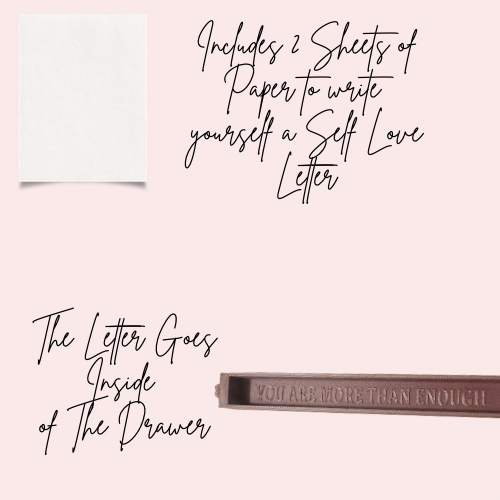 Includes 2 Sheets of
Paper to write
yourself a Self Love
Letter
The Letter Goes
Inside
of The Drawer
YOU ARE MORE THAN ENOUGH